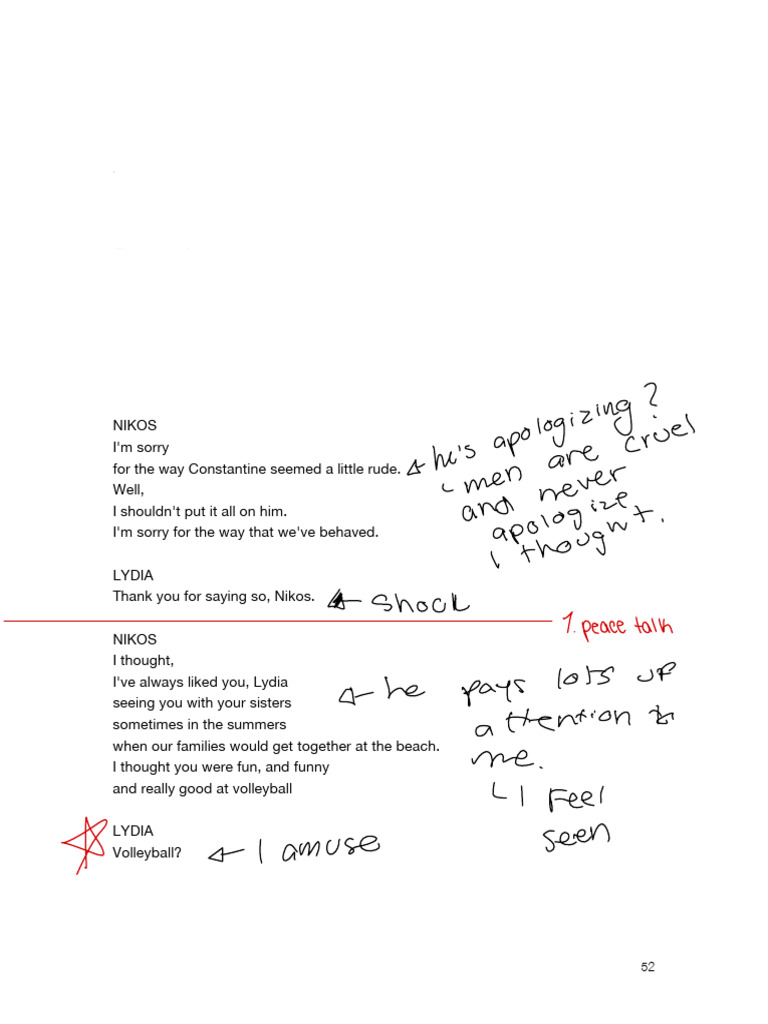 NIKOS
I'm sorry
for the way Constantine seemed a little rude.
Well,
I shouldn't put it all on him.
I'm sorry for the way that we've behaved.
he's apologizing?
men are cruel
and never
apologize
I thought.
LYDIA
Thank you for saying so, Nikos.
shock
1. peace talk
NIKOS
I thought,
I've always liked you, Lydia
seeing you with your sisters
sometimes in the summers
when our families would get together at the beach.
I thought you were fun, and funny
and really good at volleyball
he pays lots of
attention to
me.
I feel
seen
LYDIA
Volleyball?
I amuse
52